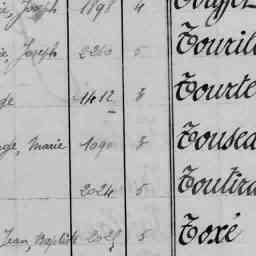 Joseph 1898 4
Joseph 2260 5 Touril
1412 8 Tourte
Marie 1090 8 Tousea
2024 5 Toutira
Jean, Baptiste 5 Toxé